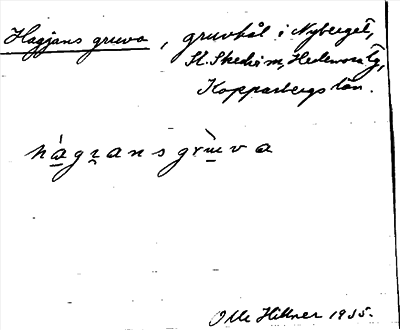 Hagjans gruva, gruvhål i Nyberget,
St. Skedvi sn, Hedemora tg,
Kopparbergs län.
hàgɿansgrɯ̀va
Olle Hillner 1935.